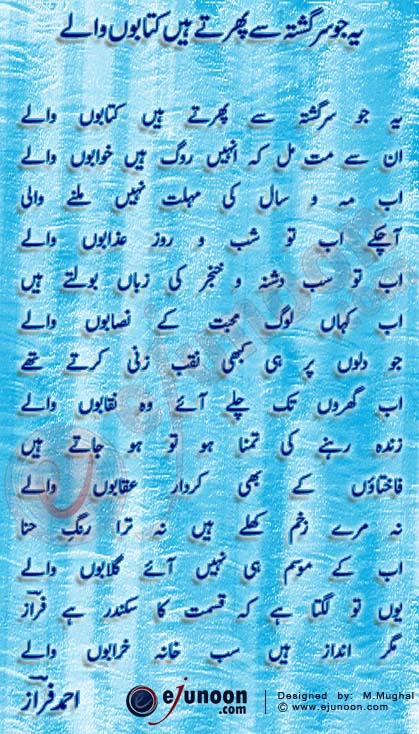 یہ جو سرگشتہ سے پھرتے ہیں کتابوں والے
یہ جو سرگشتہ سے پھرتے ہیں کتابوں والے
ان سے مت مل کہ انہیں روگ ہیں خوابوں والے
اب مہ و سال کی مہلت نہیں ملنے والی
آچکے اب تو شب و روز عذابوں والے
اب تو سب دشنہ و خنجر کی زباں بولتے ہیں
اب کہاں لوگ محبت کے نصابوں والے
جو دلوں پر ہی کبھی نقب زنی کرتے تھے
اب گھروں تک چلے آئے وہ نقابوں والے
زندہ رہنے کی تمنا ہو تو ہو جاتے ہیں
فاختاؤں کے بھی کردار عقابوں والے
نہ مرے زخم کھلے ہیں نہ ترا رنگِ حنا
اب کے موسم ہی نہیں آئے گلابوں والے
یوں تو لگتا ہے کہ قسمت کا سکندر ہے فرازؔ
مگر انداز ہیں سب خانہ خرابوں والے
احمد فرازؔ
ejunoon.com
Designed by: M.Mughal
© www.ejunoon.com
ejunoon